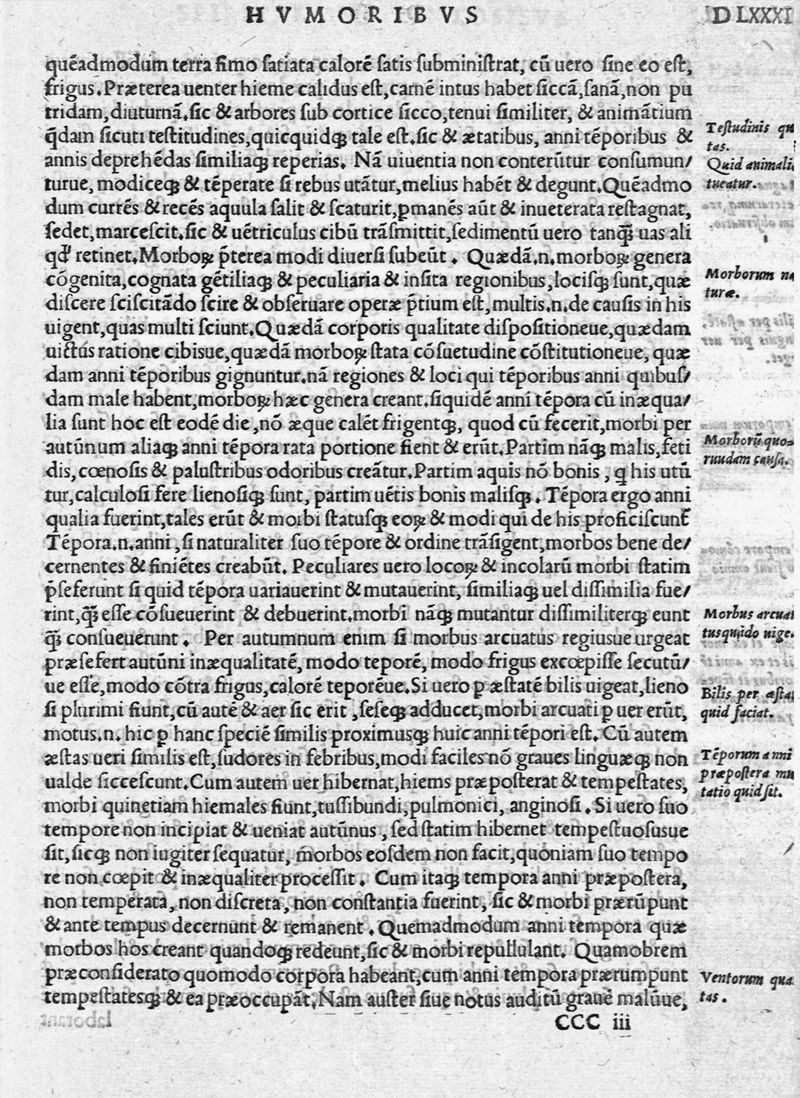 HVMORIBVS DLXXXI
quēadmodum terra fimo ſatiata calorē ſatis ſubminiſtrat, cū uero ſine eo eſt,
frigus. Præterea uenter hieme calidus eſt, carnē intus habet ſiccā, ſanā, non pu
tridam, diuturnā. ſic & arbores ſub cortice ſicco, tenui ſimiliter, & animātium
q̄dam ſicuti teſtitudines, quicquidq; tale eſt. ſic & ætatibus, anni tēporibus &
annis deprehēdas ſimiliaq; reperias. Nā uiuentia non conterūtur conſumun/
turue, modiceq; & tēperate ſi rebus utātur, melius habēt & degunt. Quēadmo
dum currēs & recēs aquula ſalit & ſcaturit, ꝑmanēs aūt & inueterata reſtagnat,
ſedet, marceſcit, ſic & uētriculus cibū trāſmittit, ſedimentū uero tanq̄ uas ali
qd' retinet. Morboꝝ p̄terea modi diuerſi ſubeūt. Quædā .n. morboꝝ genera
cōgenita, cognata gētiliaq; & peculiaria & inſita regionibus, lociſq; ſunt, quæ
diſcere ſciſcitādo ſcire & obſeruare operæ p̄tium eſt, multis .n. de cauſis in his
uigent, quas multi ſciunt. Quædā corporis qualitate diſpoſitioneue, quædam
uictus ratione cibisue, quædā morboꝝ ſtata cōſuetudine cōſtitutioneue, quæ
dam anni tēporibus gignuntur. nā regiones & loci qui tēporibus anni quibuſ/
dam male habent, morboꝝ hæc genera creant. ſiquidē anni tēpora cū inæqua/
lia ſunt hoc eſt eodē die, nō æque calēt frigentq;, quod cū fecerit, morbi per
autūnum aliaq; anni tēpora rata portione fient & erūt. Partim nāq; malis, feti
dis, cœnoſis & paluſtribus odoribus creātur. Partim aquis nō bonis, q his utū
tur, calculoſi fere lienoſiq; ſunt, partim uētis bonis maliſq;. Tēpora ergo anni
qualia fuerint, tales erūt & morbi ſtatuſq; eoꝝ & modi qui de his proficiſcunt̄
Tēpora .n. anni, ſi naturaliter ſuo tēpore & ordine trāſigent, morbos bene de/
cernentes & finiētes creabūt. Peculiares uero locoꝝ & incolarū morbi ſtatim
p̄ſeferunt ſi quid tēpora uariauerint & mutauerint, ſimiliaq; uel diſſimilia fue/
rint, q̄ eſſe cōſueuerint & debuerint. morbi nāq; mutantur diſſimiliterq; eunt
q̄ conſueuerunt. Per autumnum enim ſi morbus arcuatus regiusue urgeat
præſefert autūni inæqualitatē, modo teporē, modo frigus excœpiſſe ſecutū/
ue eſſe, modo cōtra frigus, calorē teporēue. Si uero ꝑ æſtatē bilis uigeat, lieno
ſi plurimi fiunt, cū autē & aer ſic erit, ſeſeq; adducet, morbi arcuati ꝑ uer erūt,
motus .n. hic ꝑ hanc ſpeciē ſimilis proximusq; huic anni tēpori eſt. Cū autem
æſtas ueri ſimilis eſt, ſudores in febribus, modi faciles nō graues linguæq; non
ualde ſicceſcunt. Cum autem uer hibernat, hiems præpoſterat & tempeſtates,
morbi quinetiam hiemales fiunt, tuſſibundi, pulmonici, anginoſi. Si uero ſuo
tempore non incipiat & ueniat autūnus, ſed ſtatim hibernet tempeſtuoſusue
ſit, ſicq; non iugiter ſequatur, morbos eoſdem non facit, quoniam ſuo tempo
re non cœpit & inæqualiter proceſſit. Cum itaq; tempora anni præpoſtera,
non temperata, non diſcreta, non conſtantia fuerint, ſic & morbi prærūpunt
& ante tempus decernunt & remanent. Quemadmodum anni tempora quæ
morbos hos creant quandoq; redeunt, ſic & morbi repullulant. Quamobrem
præconſiderato quomodo corpora habeant, cum anni tempora prærumpunt
tempeſtateſq; & ea præoccupāt. Nam auſter ſiue notus auditū grauē malūue,
CCC iii
Teſtudinis qu
tas.
Quid animali
tueatur.
Morborum na
turæ.
Morborū quo-
rundam cauſa.
Morbus arcuat
tus quido uige
Bilis per æſta
quid faciat.
Tēporum anni
præpoſtera mu
tatio quid ſit.
Ventorum qua
tas.